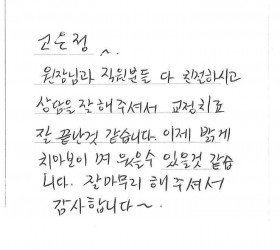 고은정
^^.
원장님과 직원분들 다 친절하시고
상담을 잘해주셔서 교정치료
잘 끝난것 같습니다. 이제 밝게
치아보이며 웃을수 있을것 같습
니다. 잘마무리 해주셔서
감사합니다~.